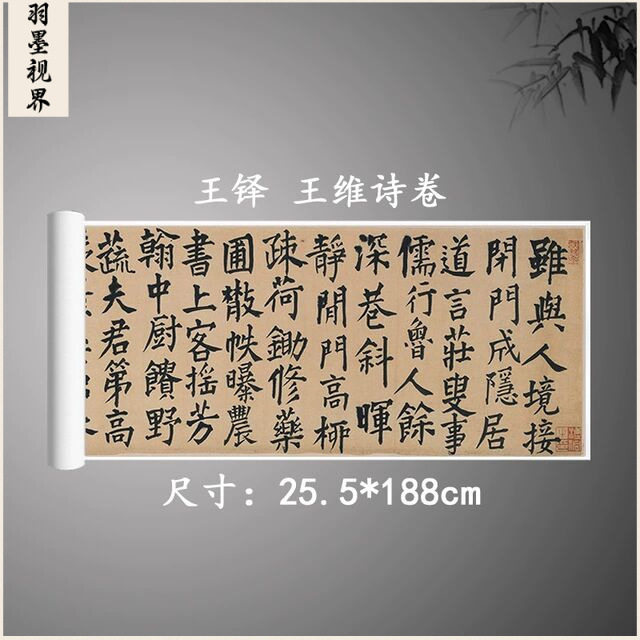 羽墨视界
王铎 王维诗卷
雖與人境接
閇門成隱居
道言莊叟事
儒行魯人餘
深巷斜暉
靜閒門高柳
疎荷鋤修藥
圃散帙曝農
書上客搖芳
翰中厨饋野
蔬夫君第高
尺寸：25.5*188cm